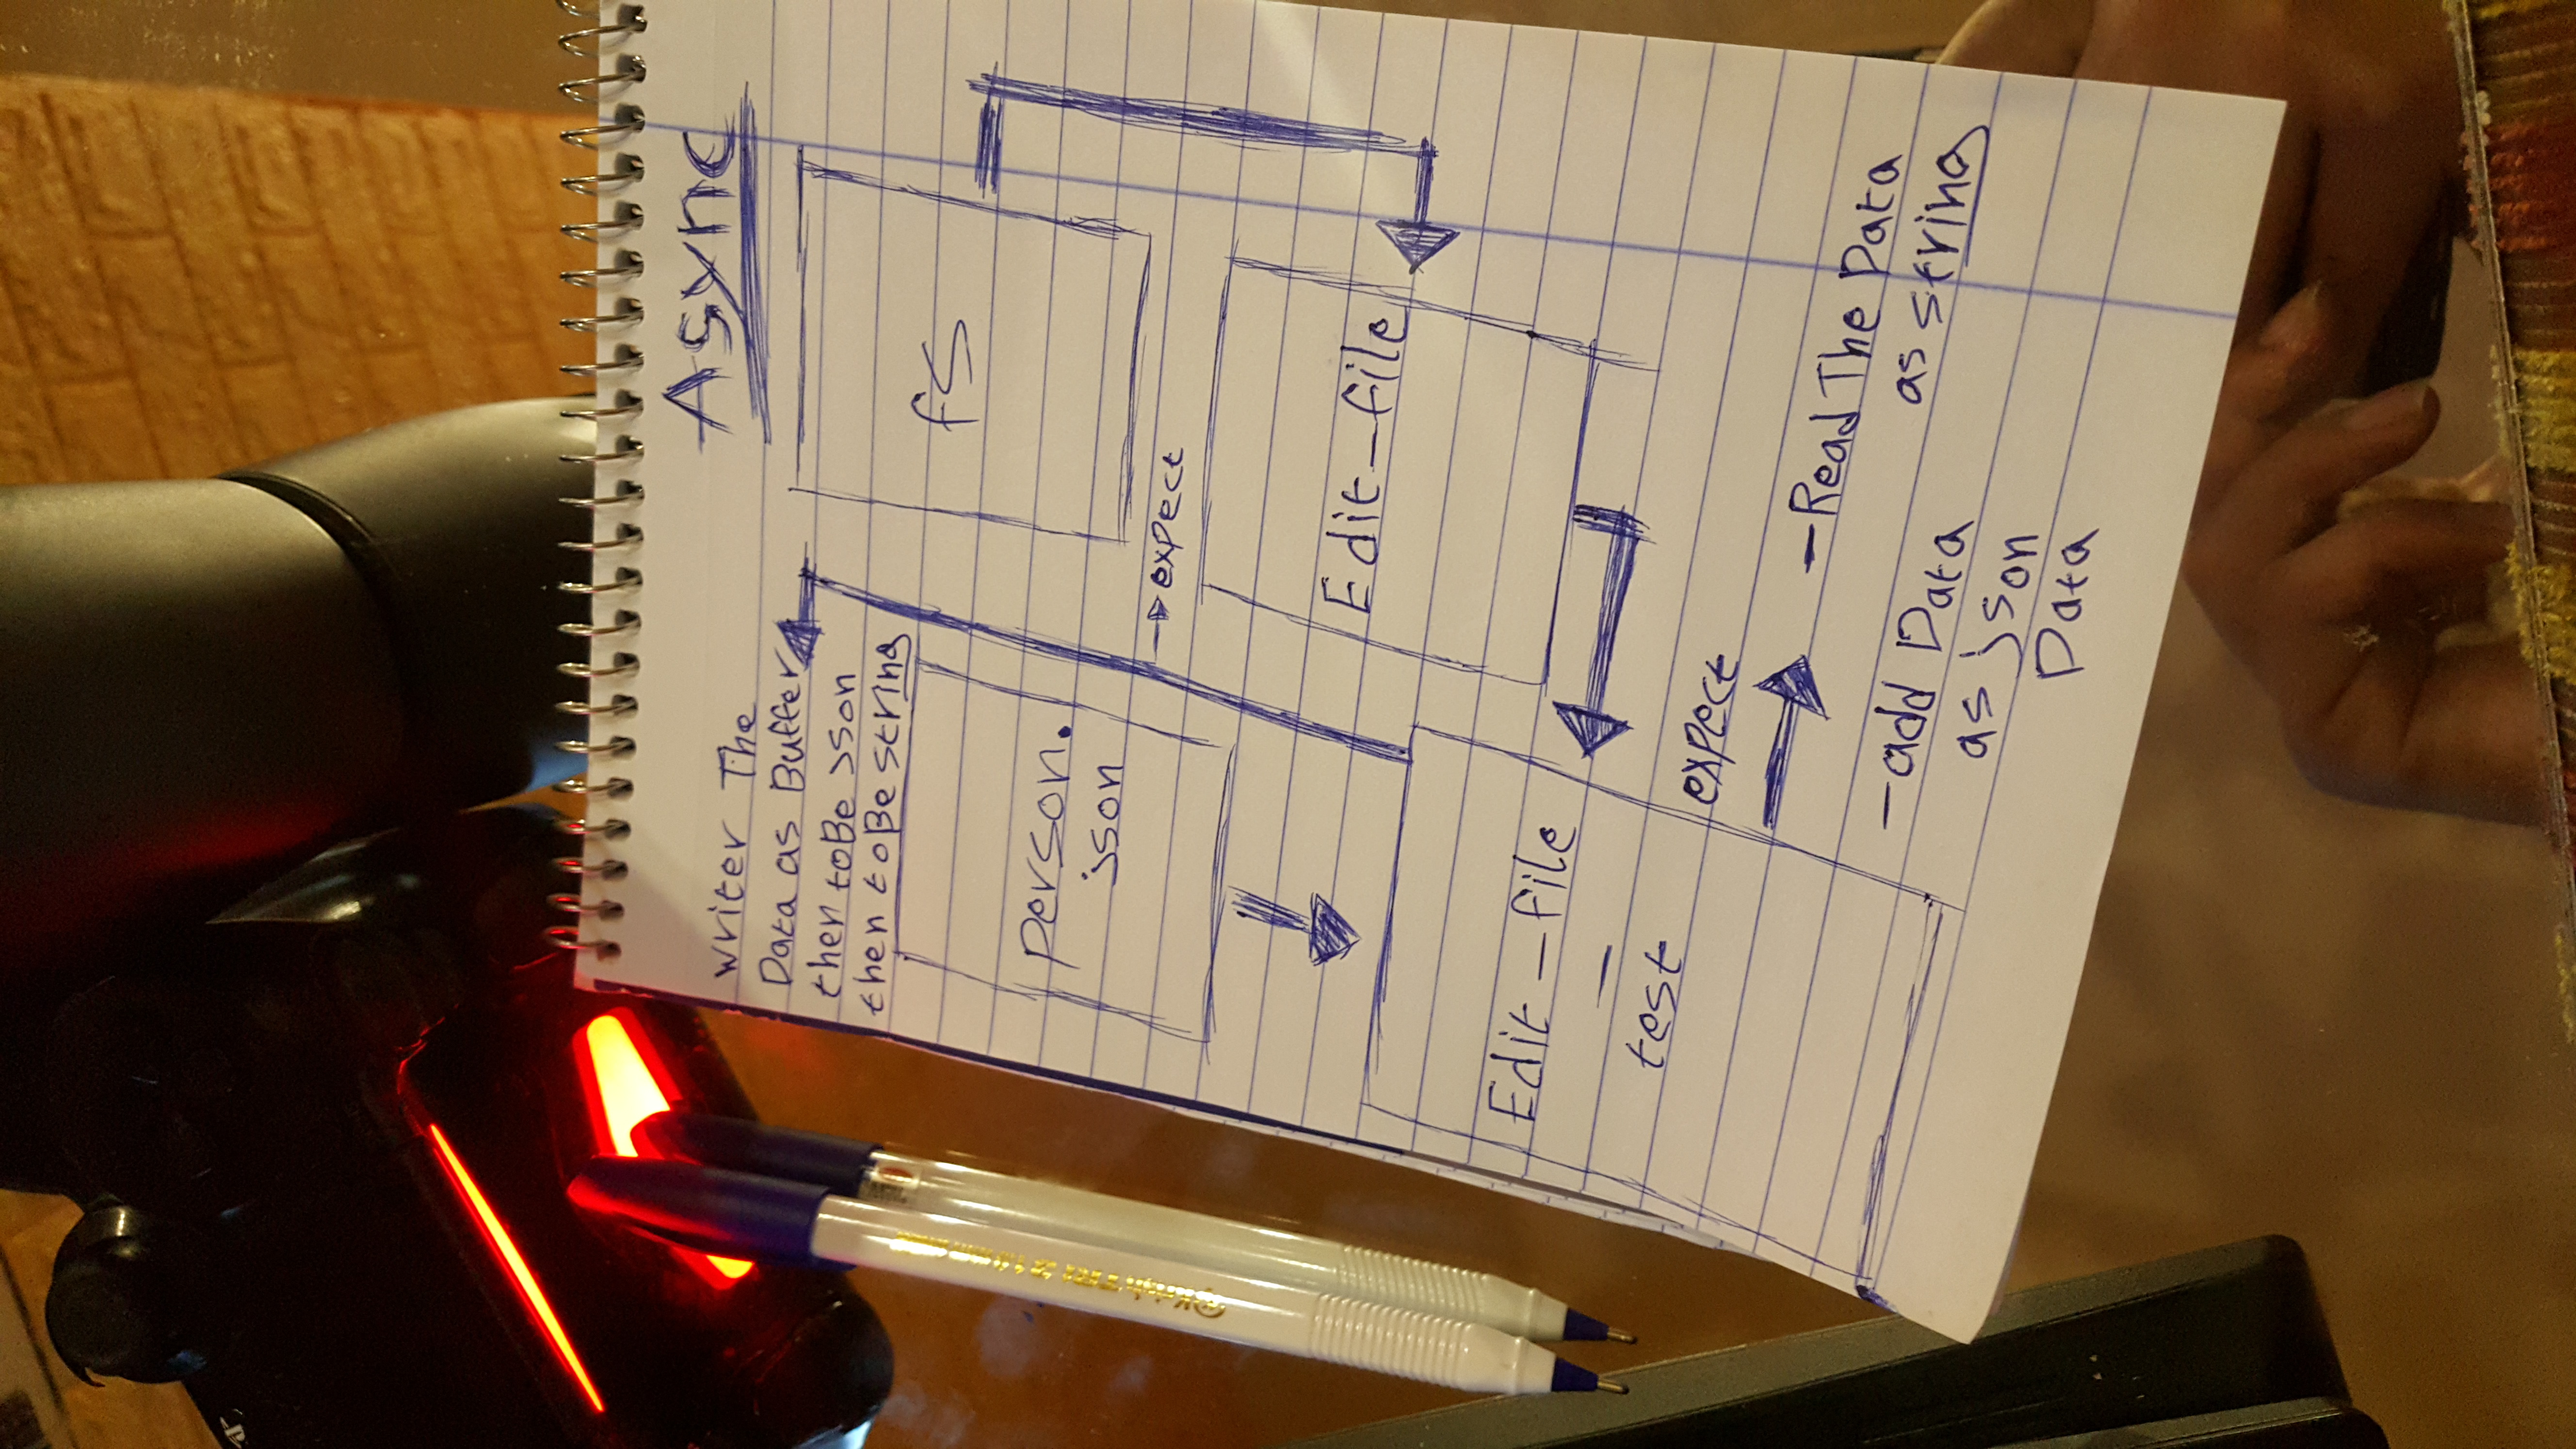 Async
writer The
Data as Buffer
then toBe json
then toBe string
fs
person.
json
expect
Edit_file
Edit_file
_
test
expect
-Read The Data
as string
-add Data
as json
Data